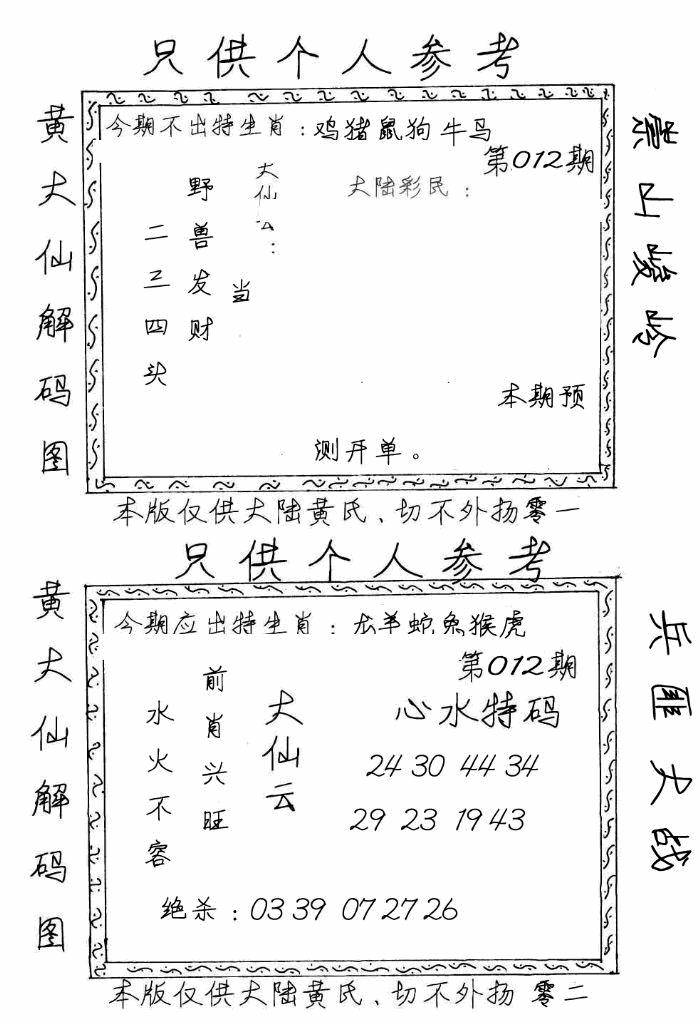 只供个人参考
黄大仙解码图
今期不出特生肖：鸡猪鼠狗牛马
第012期
大陆彩民：
大仙云：
当
野兽发财
二三四头
本期预
测开单。
崇山峻岭
本版仅供大陆黄氏、切不外扬零一
只供个人参考
黄大仙解码图
今期应出特生肖：龙羊蛇兔猴虎
第012期
心水特码
大仙云
前肖兴旺
水火不容
24 30 44 34
29 23 19 43
绝杀：03 39 07 27 26
兵匪大战
本版仅供大陆黄氏、切不外扬 零二